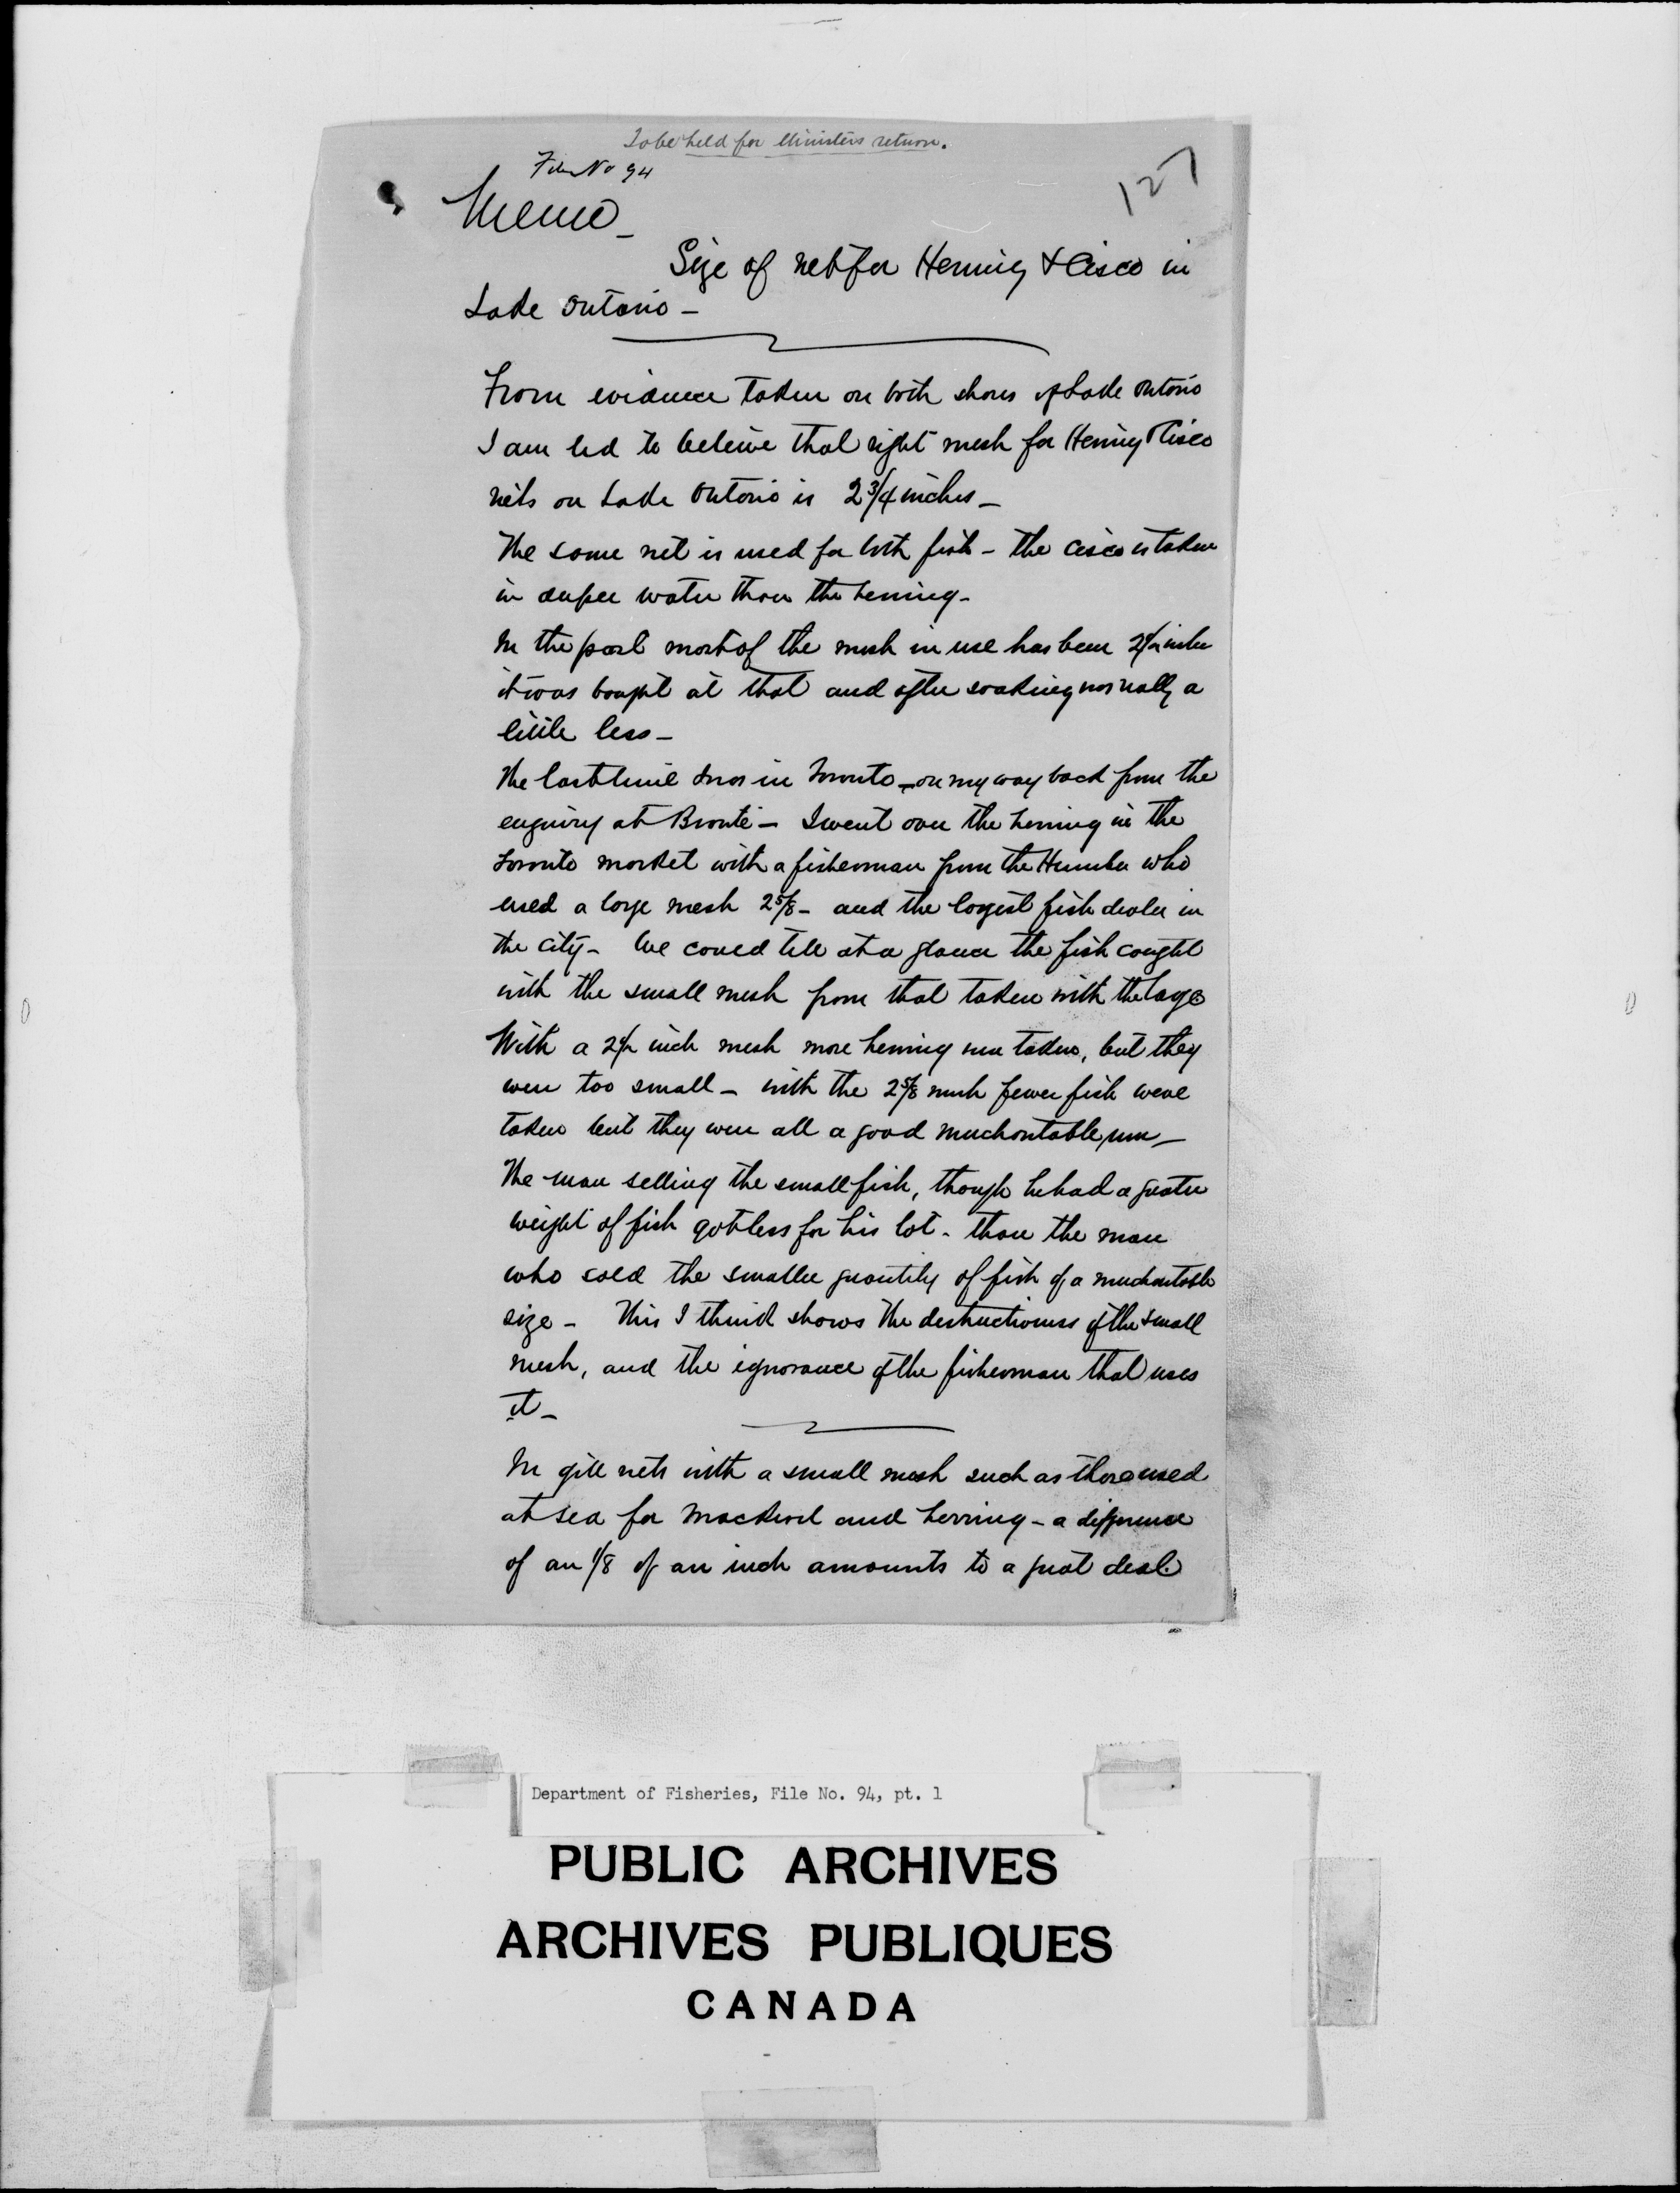 To be held for Ministers return.
File No 94
127
Memo
Size of net for Herring & Cisco in
Lake Ontario -
From evidence taken on both shores of Lake Ontario
I am led to believe that right mesh for Herring & Cisco
nets on Lake Ontario is 2 3/4 inches -
The same net is used for both fish - the cisco is taken
in deeper water than the herring -
In the past most of the mesh in use has been 2 1/2 inches
it was bought at that and after soaking was really a
little less -
The last time I was in Toronto - on my way back from the
enquiry at Bronte - I went over the herring in the
Toronto market with a fisherman from the Humber who
used a large mesh 2 5/8 - and the largest fish dealer in
the city - We could tell at a glance the fish caught
with the small mesh from that taken with the large
With a 2 1/2 inch mesh more herring were taken, but they
were too small - with the 2 5/8 mesh fewer fish were
taken but they were all a good merchantable run -
The man selling the small fish, though he had a greater
weight of fish got less for his lot - than the man
who sold the smaller quantity of fish of a merchantable
size - This I think shows the destructiveness of the small
mesh, and the ignorance of the fisherman that uses
it -
In gill nets with a small mesh such as those used
at sea for mackerel and herring - a difference
of an 1/8 of an inch amounts to a great deal.
Department of Fisheries, File No. 94, pt. 1
PUBLIC ARCHIVES
ARCHIVES PUBLIQUES
CANADA